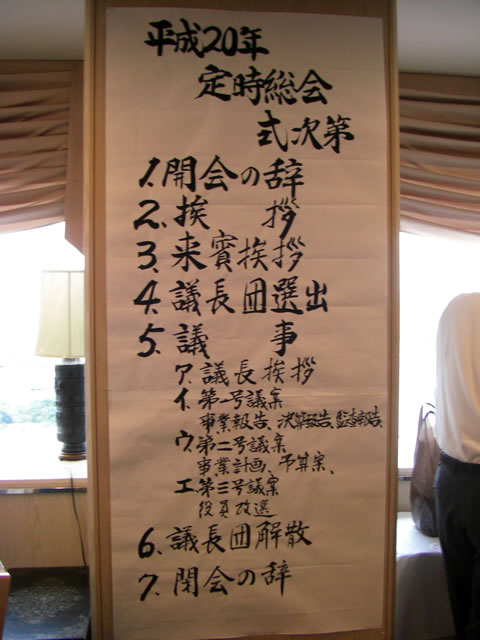 平成20年
定時総会
式次第
1. 開会の辞
2. 挨拶
3. 来賓挨拶
4. 議長団選出
5. 議事
ア. 議長挨拶
イ. 第一号議案
事業報告、決算報告、監査報告、
ウ. 第二号議案
事業計画、予算案、
エ. 第三号議案
役員改選
6. 議長団解散
7. 閉会の辞